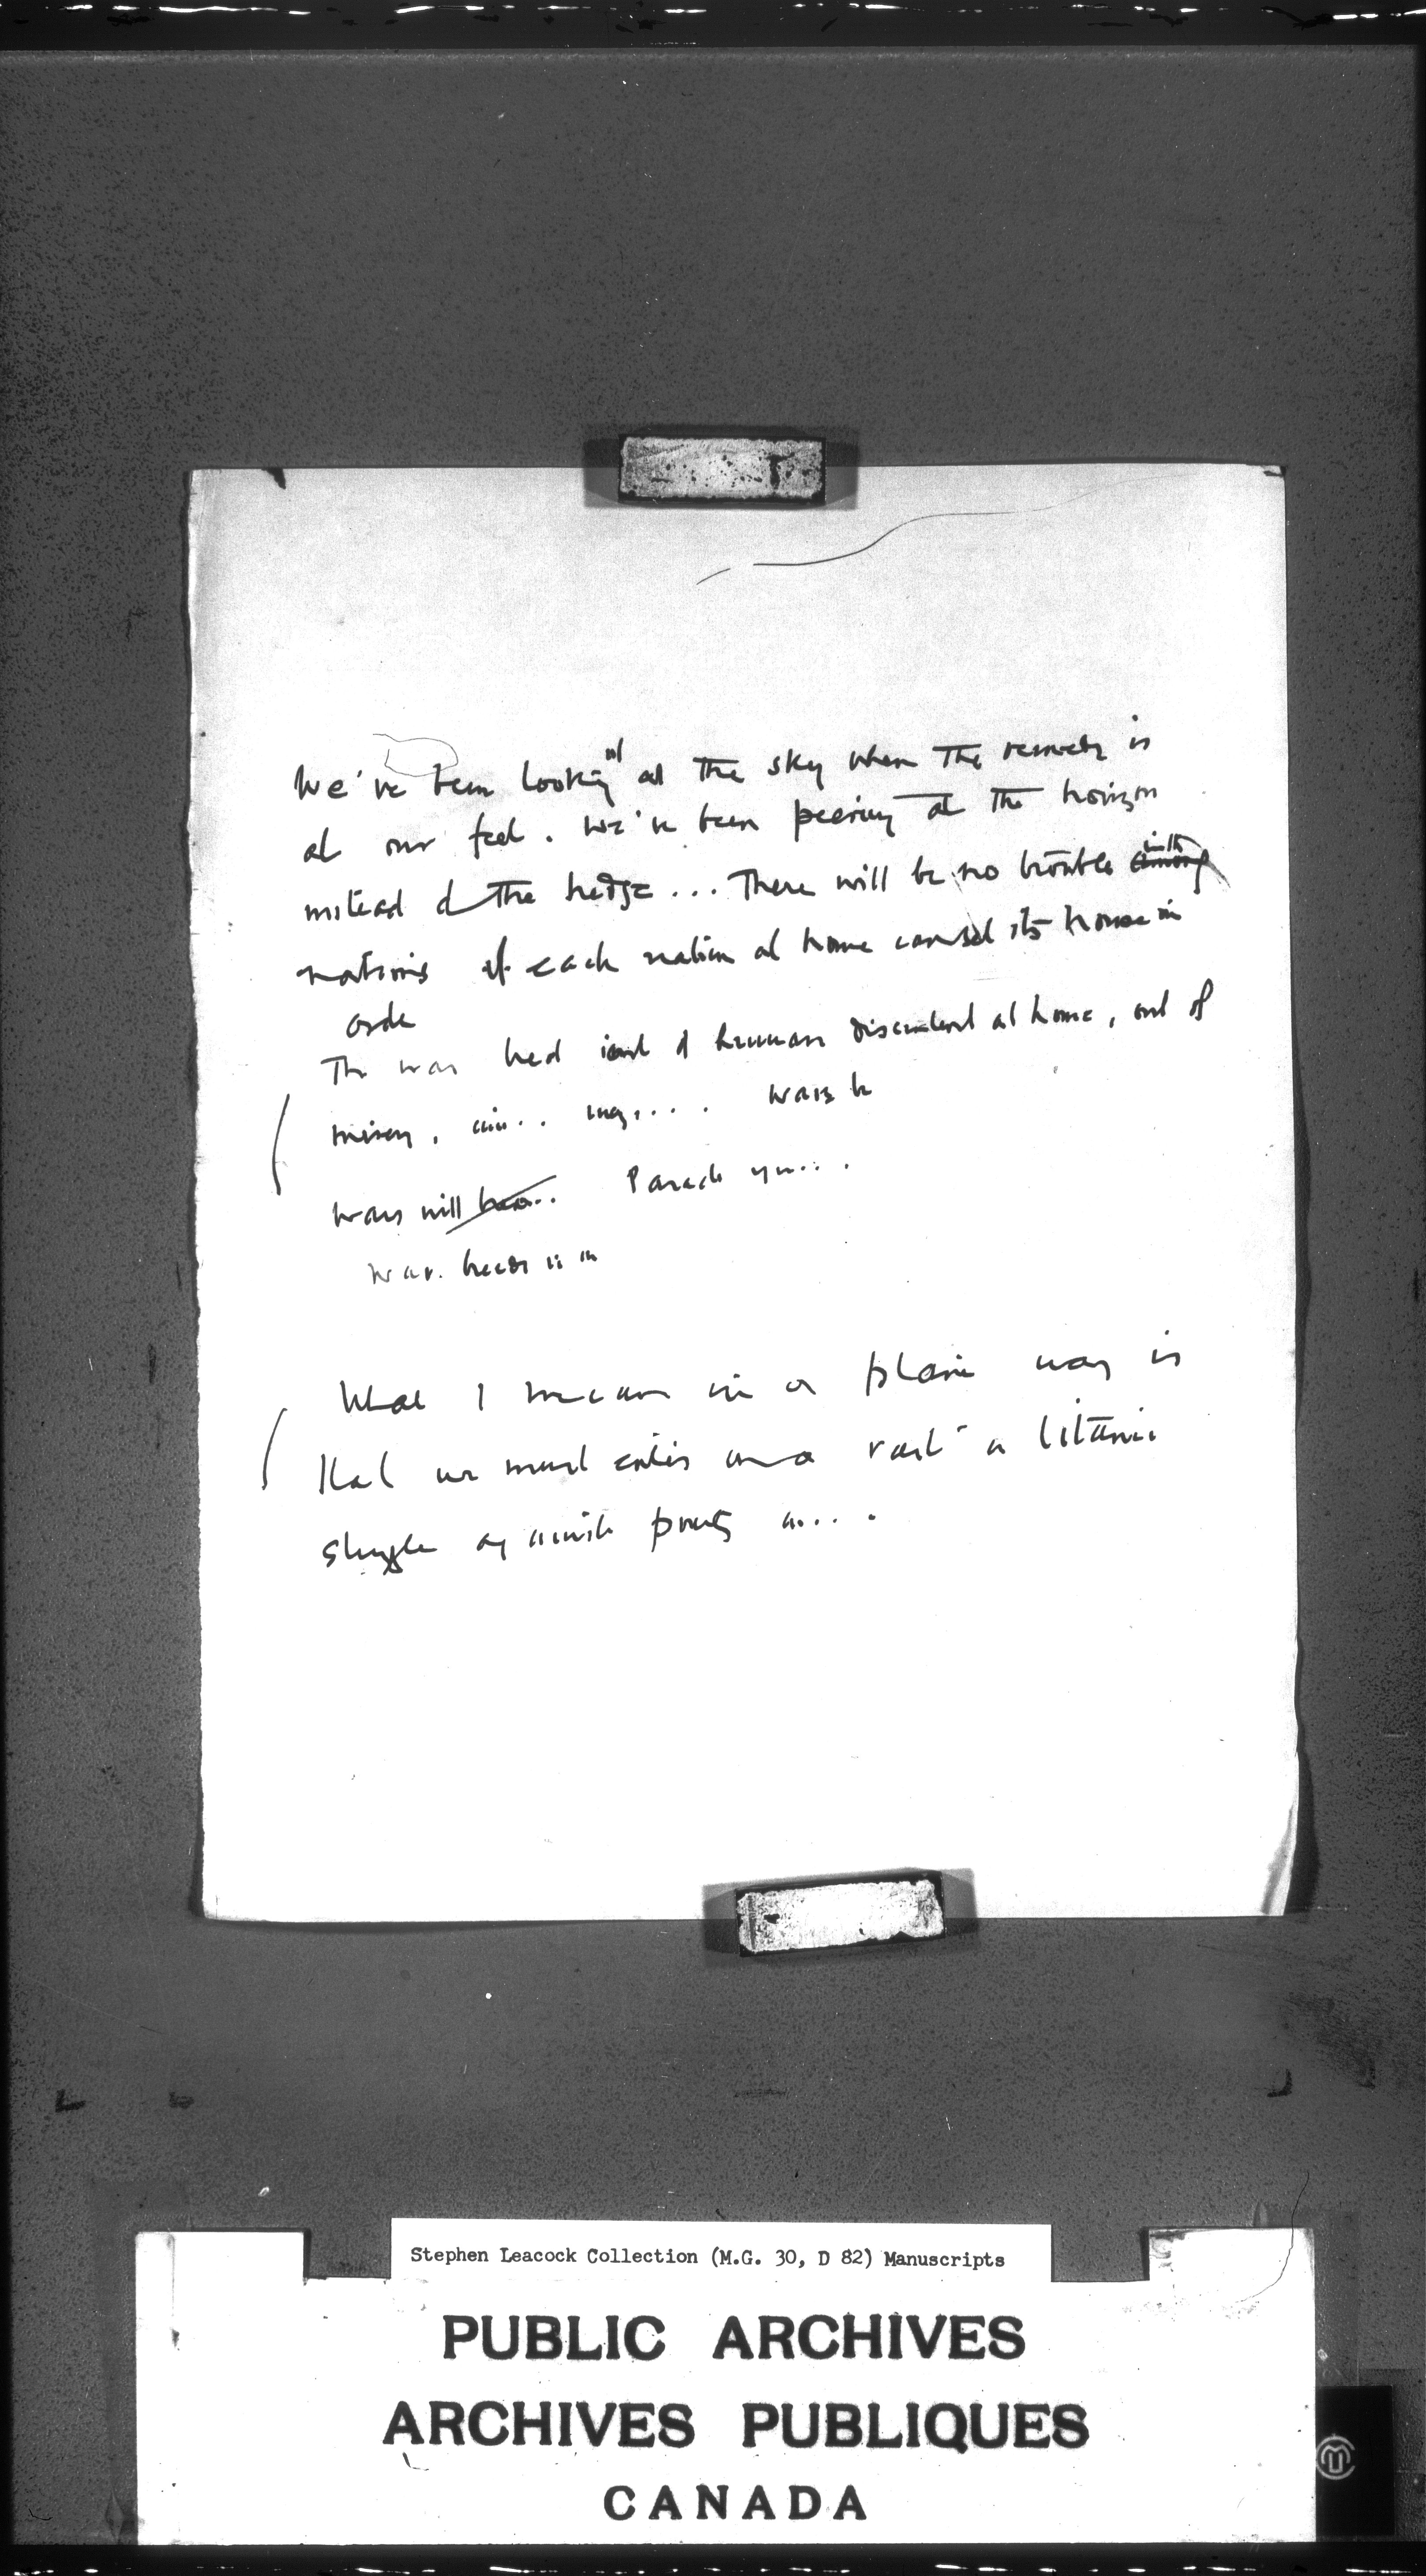 We've been looking at the sky when the remedy is
at our feet. We've been peering at the horizon
instead of the hedge... There will be no trouble among with
nations if each nation at home can set its house in
order
The war bred out of human discontent at home, out of
misery,
wars will
War. breeds is in
What I mean in a plain way is
that we must enter on a vast a titanic
struggle against poverty a....
Stephen Leacock Collection (M.G. 30, D 82) Manuscripts
PUBLIC ARCHIVES
ARCHIVES PUBLIQUES
CANADA